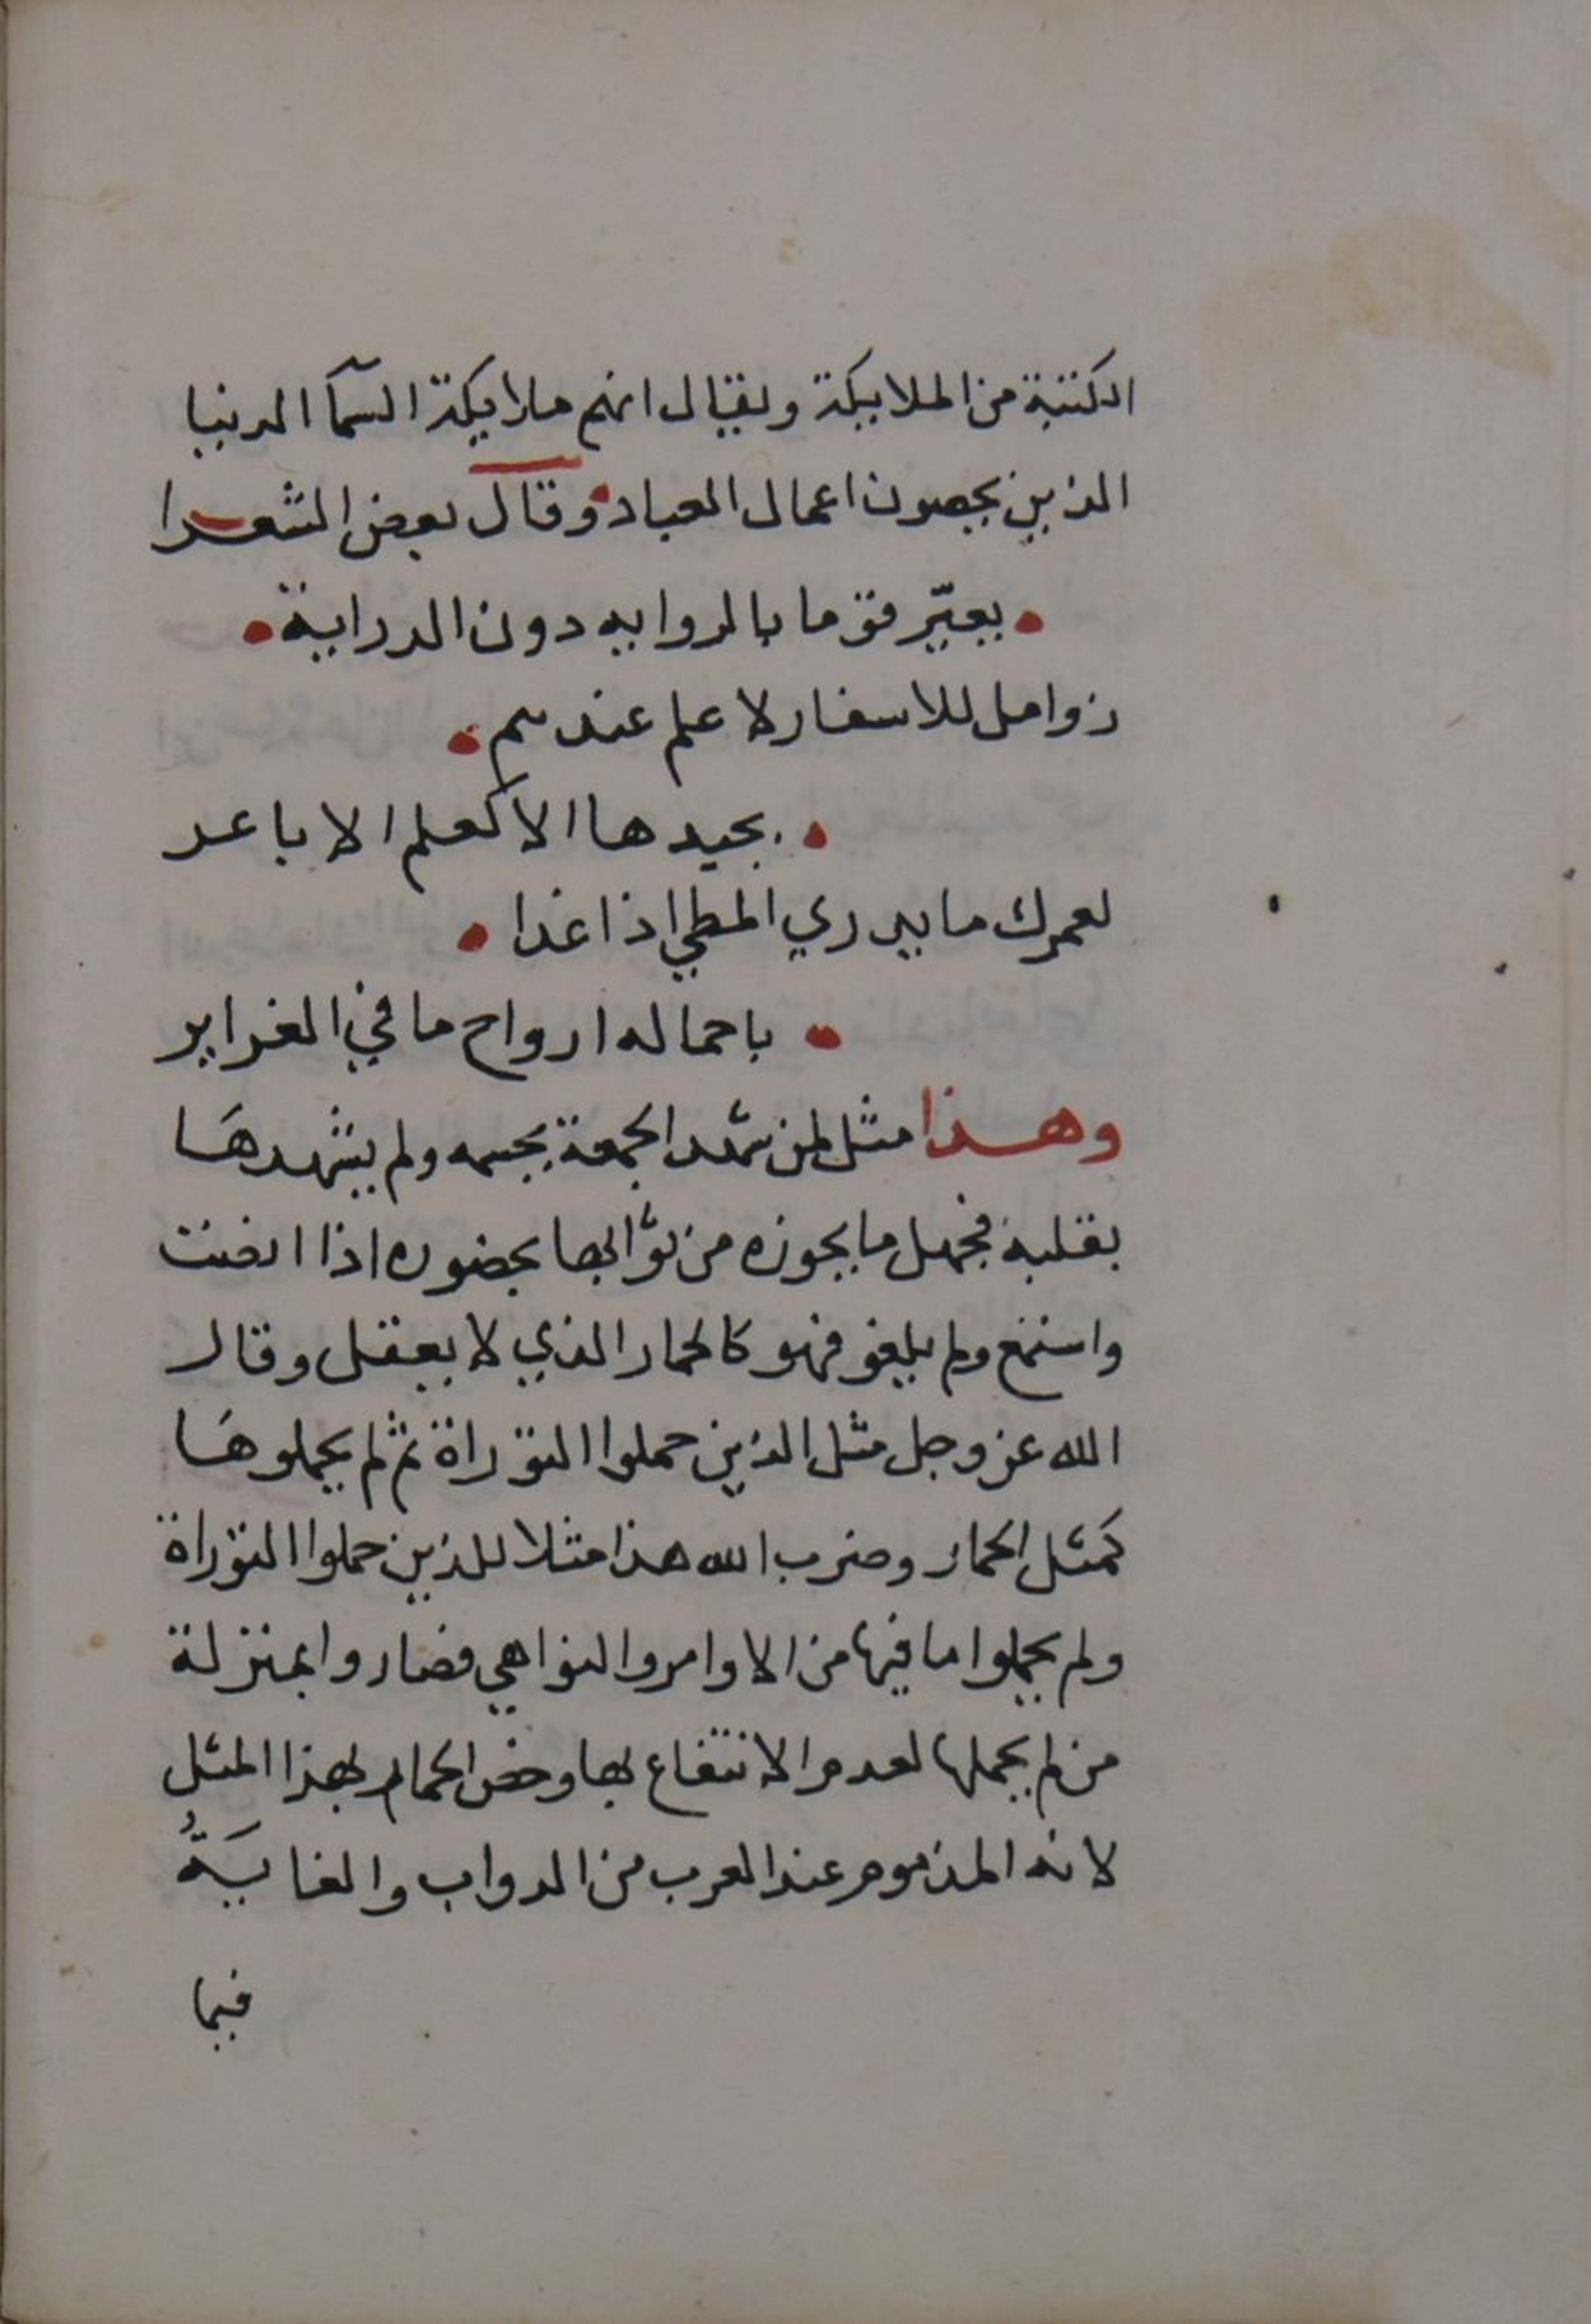 الكتبة من الملايكة ويقال انهم ملايكة السمآ الدنيا
الذين يحصون اعمال العباد وقال بعض الشعرا
يعيّر قوما بالروايه دون الدراية
زوامل للاسفار لا علم عندهم
بجيدها الا كعلم الاباعد
لعمرك ما يدري المطي اذا غدا
باحماله ارواح ما في الغراير
وهذا مثل لمن شهد الجمعة بجسمه ولم يشهدها
بقلبه فجهل ما يحوزه من ثوابها بحضوره اذا انصت
واستمع ولم يلغو فهو كالحمار الذي لا يعقل وقال
الله عز وجل مثل الذين حملوا التوراة ثم لم يحملوها
كمثل الحمار وضرب الله هذا مثلا للذين حملوا التوراة
ولم يحملوا ما فيها من الاوامر والنواهي فصاروا بمنزلة
من لم يحملها لعدم الانتفاع بها وخص الحمار بهذا المثل
لانه المذموم عند العرب من الدواب والغايَةُ
فيما